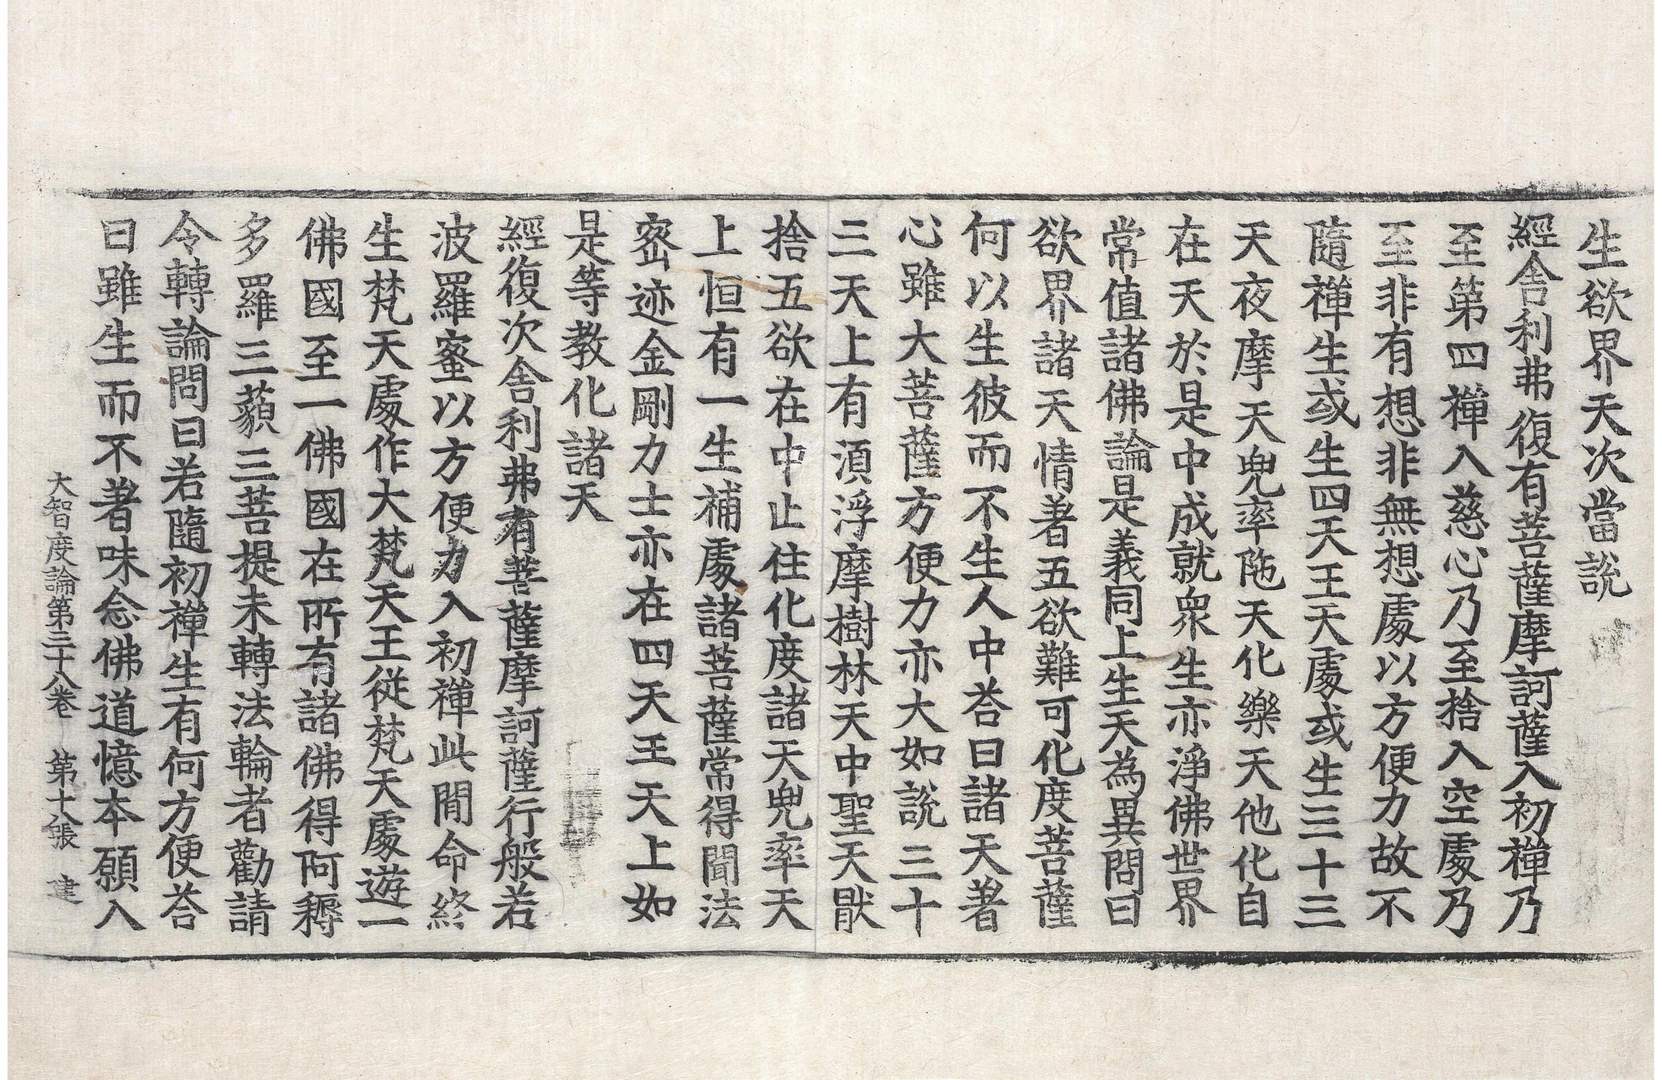 生欲界天次當說
經舍利弗復有菩薩摩訶薩入初禪乃
至第四禪入慈心乃至捨入空處乃
至非有想非無想處以方便力故不
隨禪生或生四天王天處或生三十三
天夜摩天兜率陁天化樂天他化自
在天於是中成就衆生亦淨佛世界
常值諸佛論是義同上生天為異問曰
欲界諸天情著五欲難可化度菩薩
何以生彼而不生人中荅曰諸天著
心雖大菩薩方便力亦大如說三十
三天上有湏浮摩樹林天中聖天猒
捨五欲在中止住化度諸天兜率天
上恒有一生補處諸菩薩常得聞法
宻迹金剛力士亦在四天王天上如
是等教化諸天
經復次舍利弗有菩薩摩訶薩行般若
波羅蜜以方便力入初禪此閒命終
生梵天處作大梵天王從梵天處遊一
佛國至一佛國在所有諸佛得阿耨
多羅三藐三菩提未轉法輪者勸請
令轉論問曰若隨初禪生有何方便荅
曰雖生而不著味念佛道憶本願入
大智度論第三十八卷 第十八張 建